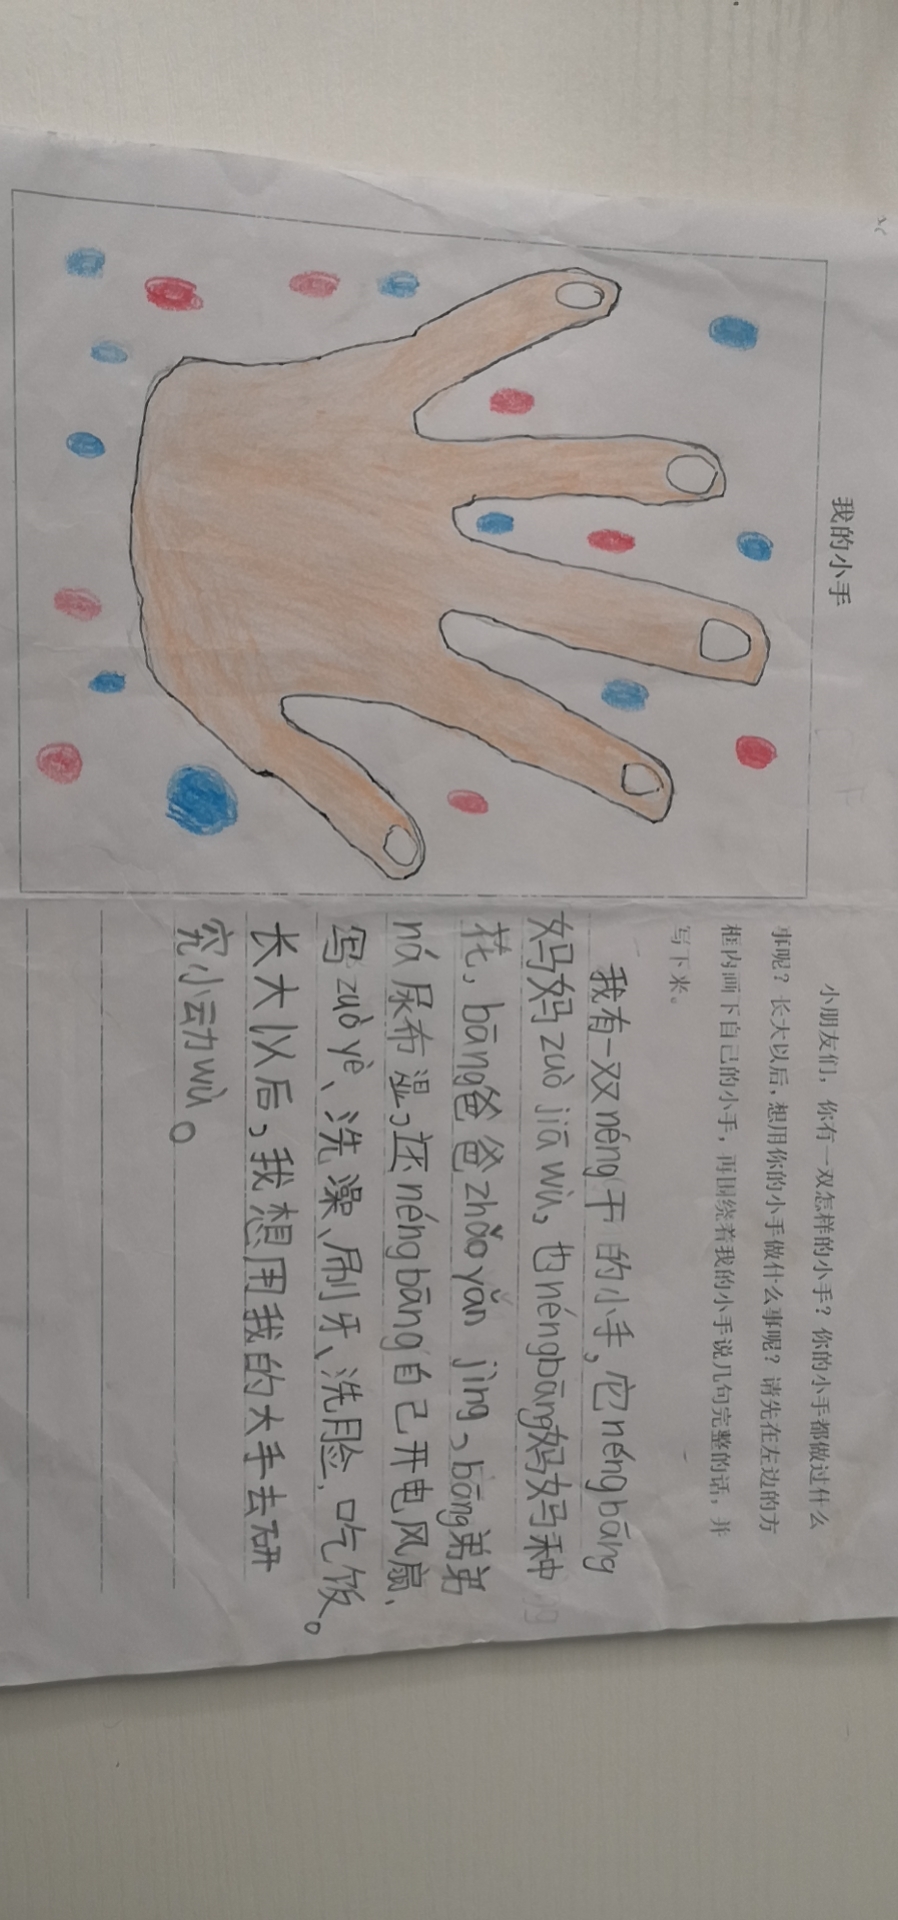 我的小手
小朋友们，你有一双怎样的小手？你的小手都做过什么
事呢？长大以后，想用你的小手做什么事呢？请先在左边的方
框内画下自己的小手，再围绕着我的小手说几句完整的话，并
写下来。
我有一双néng干的小手，它néng bāng
妈妈zuò jiā wù，也néng bāng妈妈种
花，bāng爸爸zhǎo yǎn jìng、bāng弟弟
ná尿布湿，还néng bāng自己开电风扇、
写zuò yè、洗澡、刷牙、洗脸，吃饭。
长大以后，我想用我的大手去研
究小动wù。